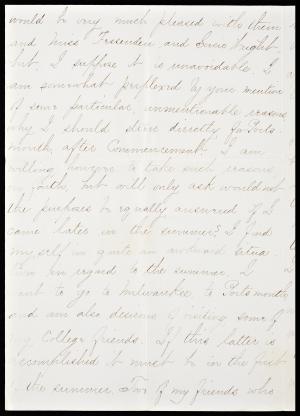 would be very much pleased with them
and Miss Fessenden and Susie Wright
but, I suppose it is unavoidable. I
am somewhat perplexed by your mention
of some particular, unmentionable reasons
why I should steer directly for Ports-
mouth, after Commencement. I am
willing however to take such reasons
on faith, but will only ask would not
the purposes be equally answered if I
came later in the summer? I find
myself in quite an awkward situa-
tion in regard to the summer. I
want to go to Milwaukee, to Portsmouth
and am also desirous of visiting some of
my College friends. If this latter is
accomplished it must be in the first
of the summer. Two of my friends who